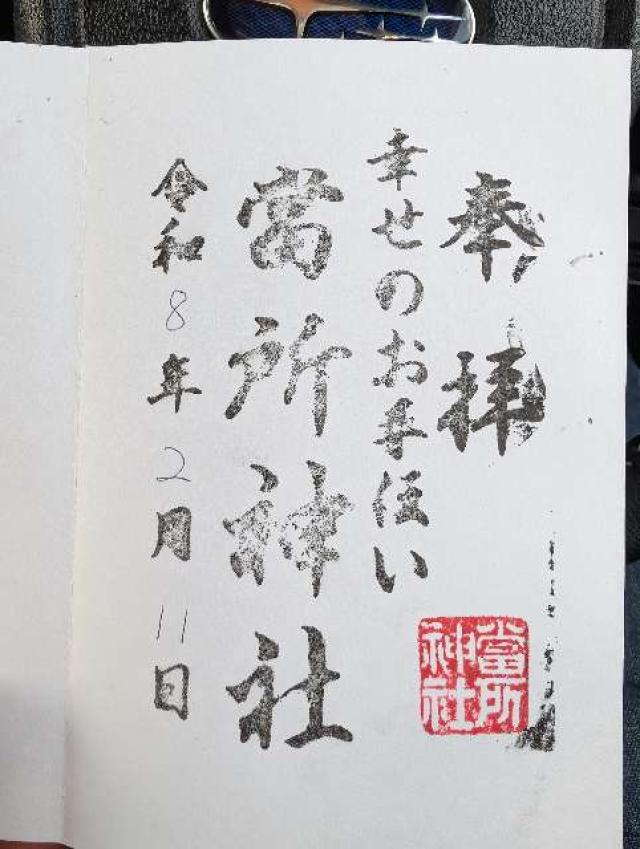 奉拝
幸せのお手伝い
當所神社
令和8年2月11日
當所
神社